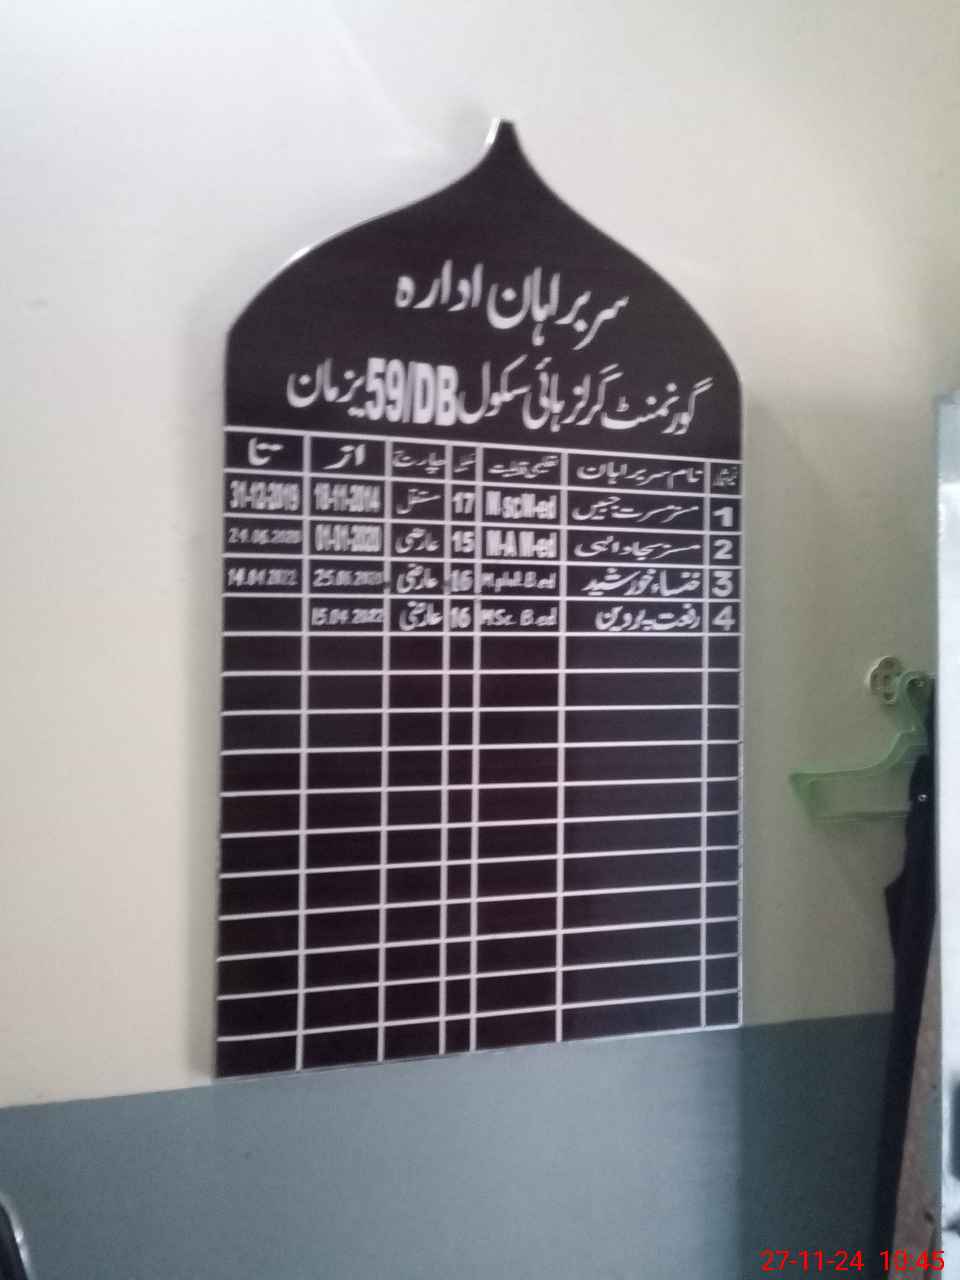 سربراہان ادارہ
گورنمنٹ گرلز ہائی سکول 59/DB یزمان
نمبر شمار نام سربراہان تعلیمی قابلیت سکیل چارج از تا
1 مسز مسرت جبیں M-sc M-ed 17 مستقل 18-11-2014 31-12-2019
2 مسز سجاد الہی M-A M-ed 15 عارضی 01-01-2020 24.06.2020
3 خنساء خورشید M.phil. B.ed 16 عارضی 25.06.2020 14.04.2022
4 رفعت پروین MSc. B.ed 16 عارضی 15.04.2022
27-11-24 10:45